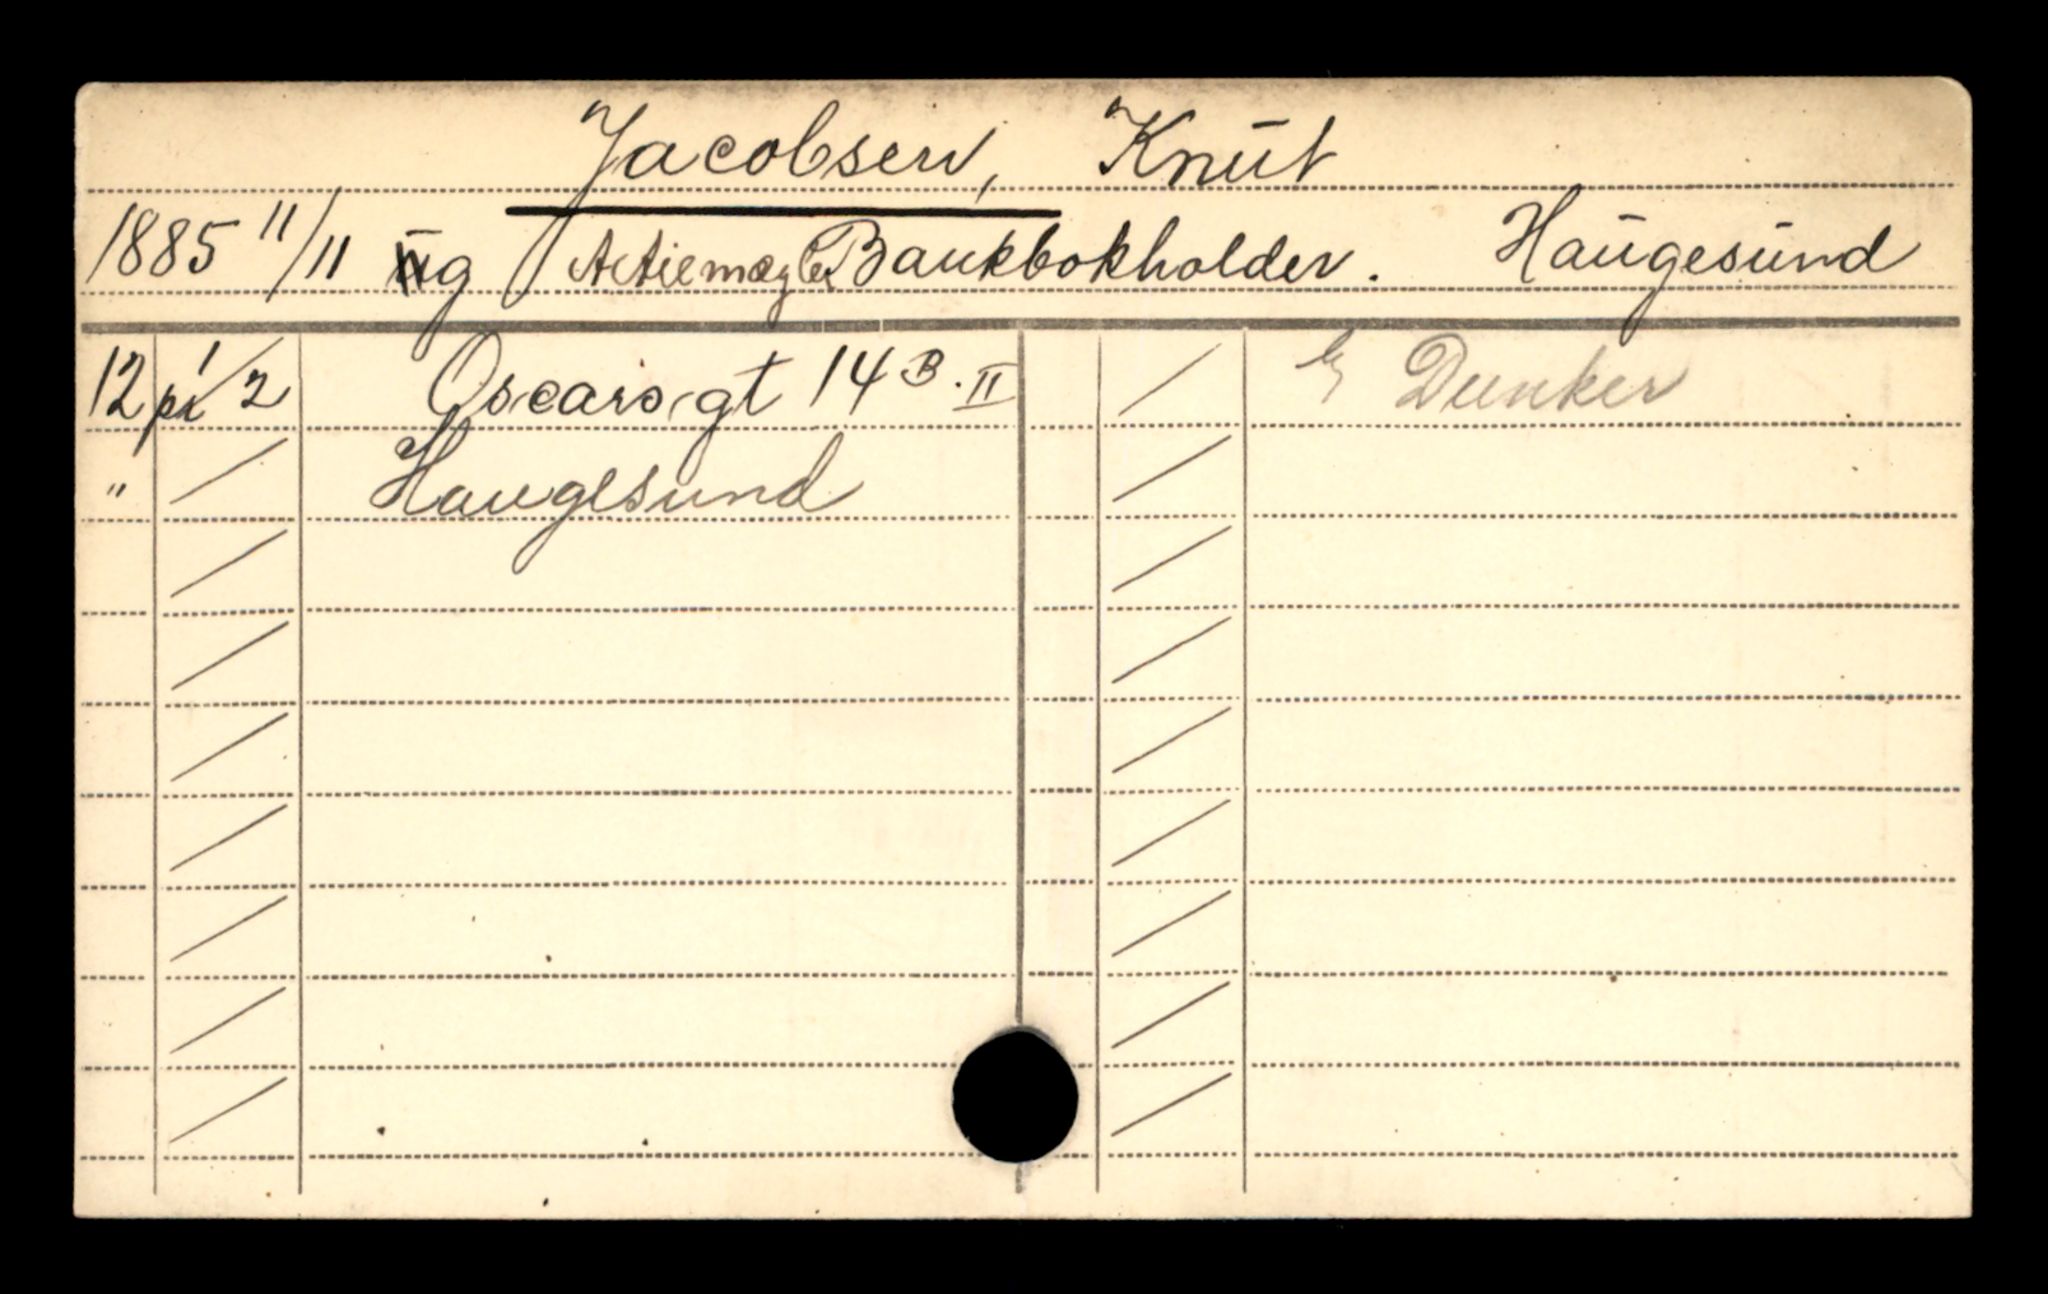 Jacobsen, Knut
1885 11/11 ug Actiemægler Bankbokholder. Haugesund
12 pr 1/2 Oscarsgt 14 B. II
E Dunker
" Haugesund